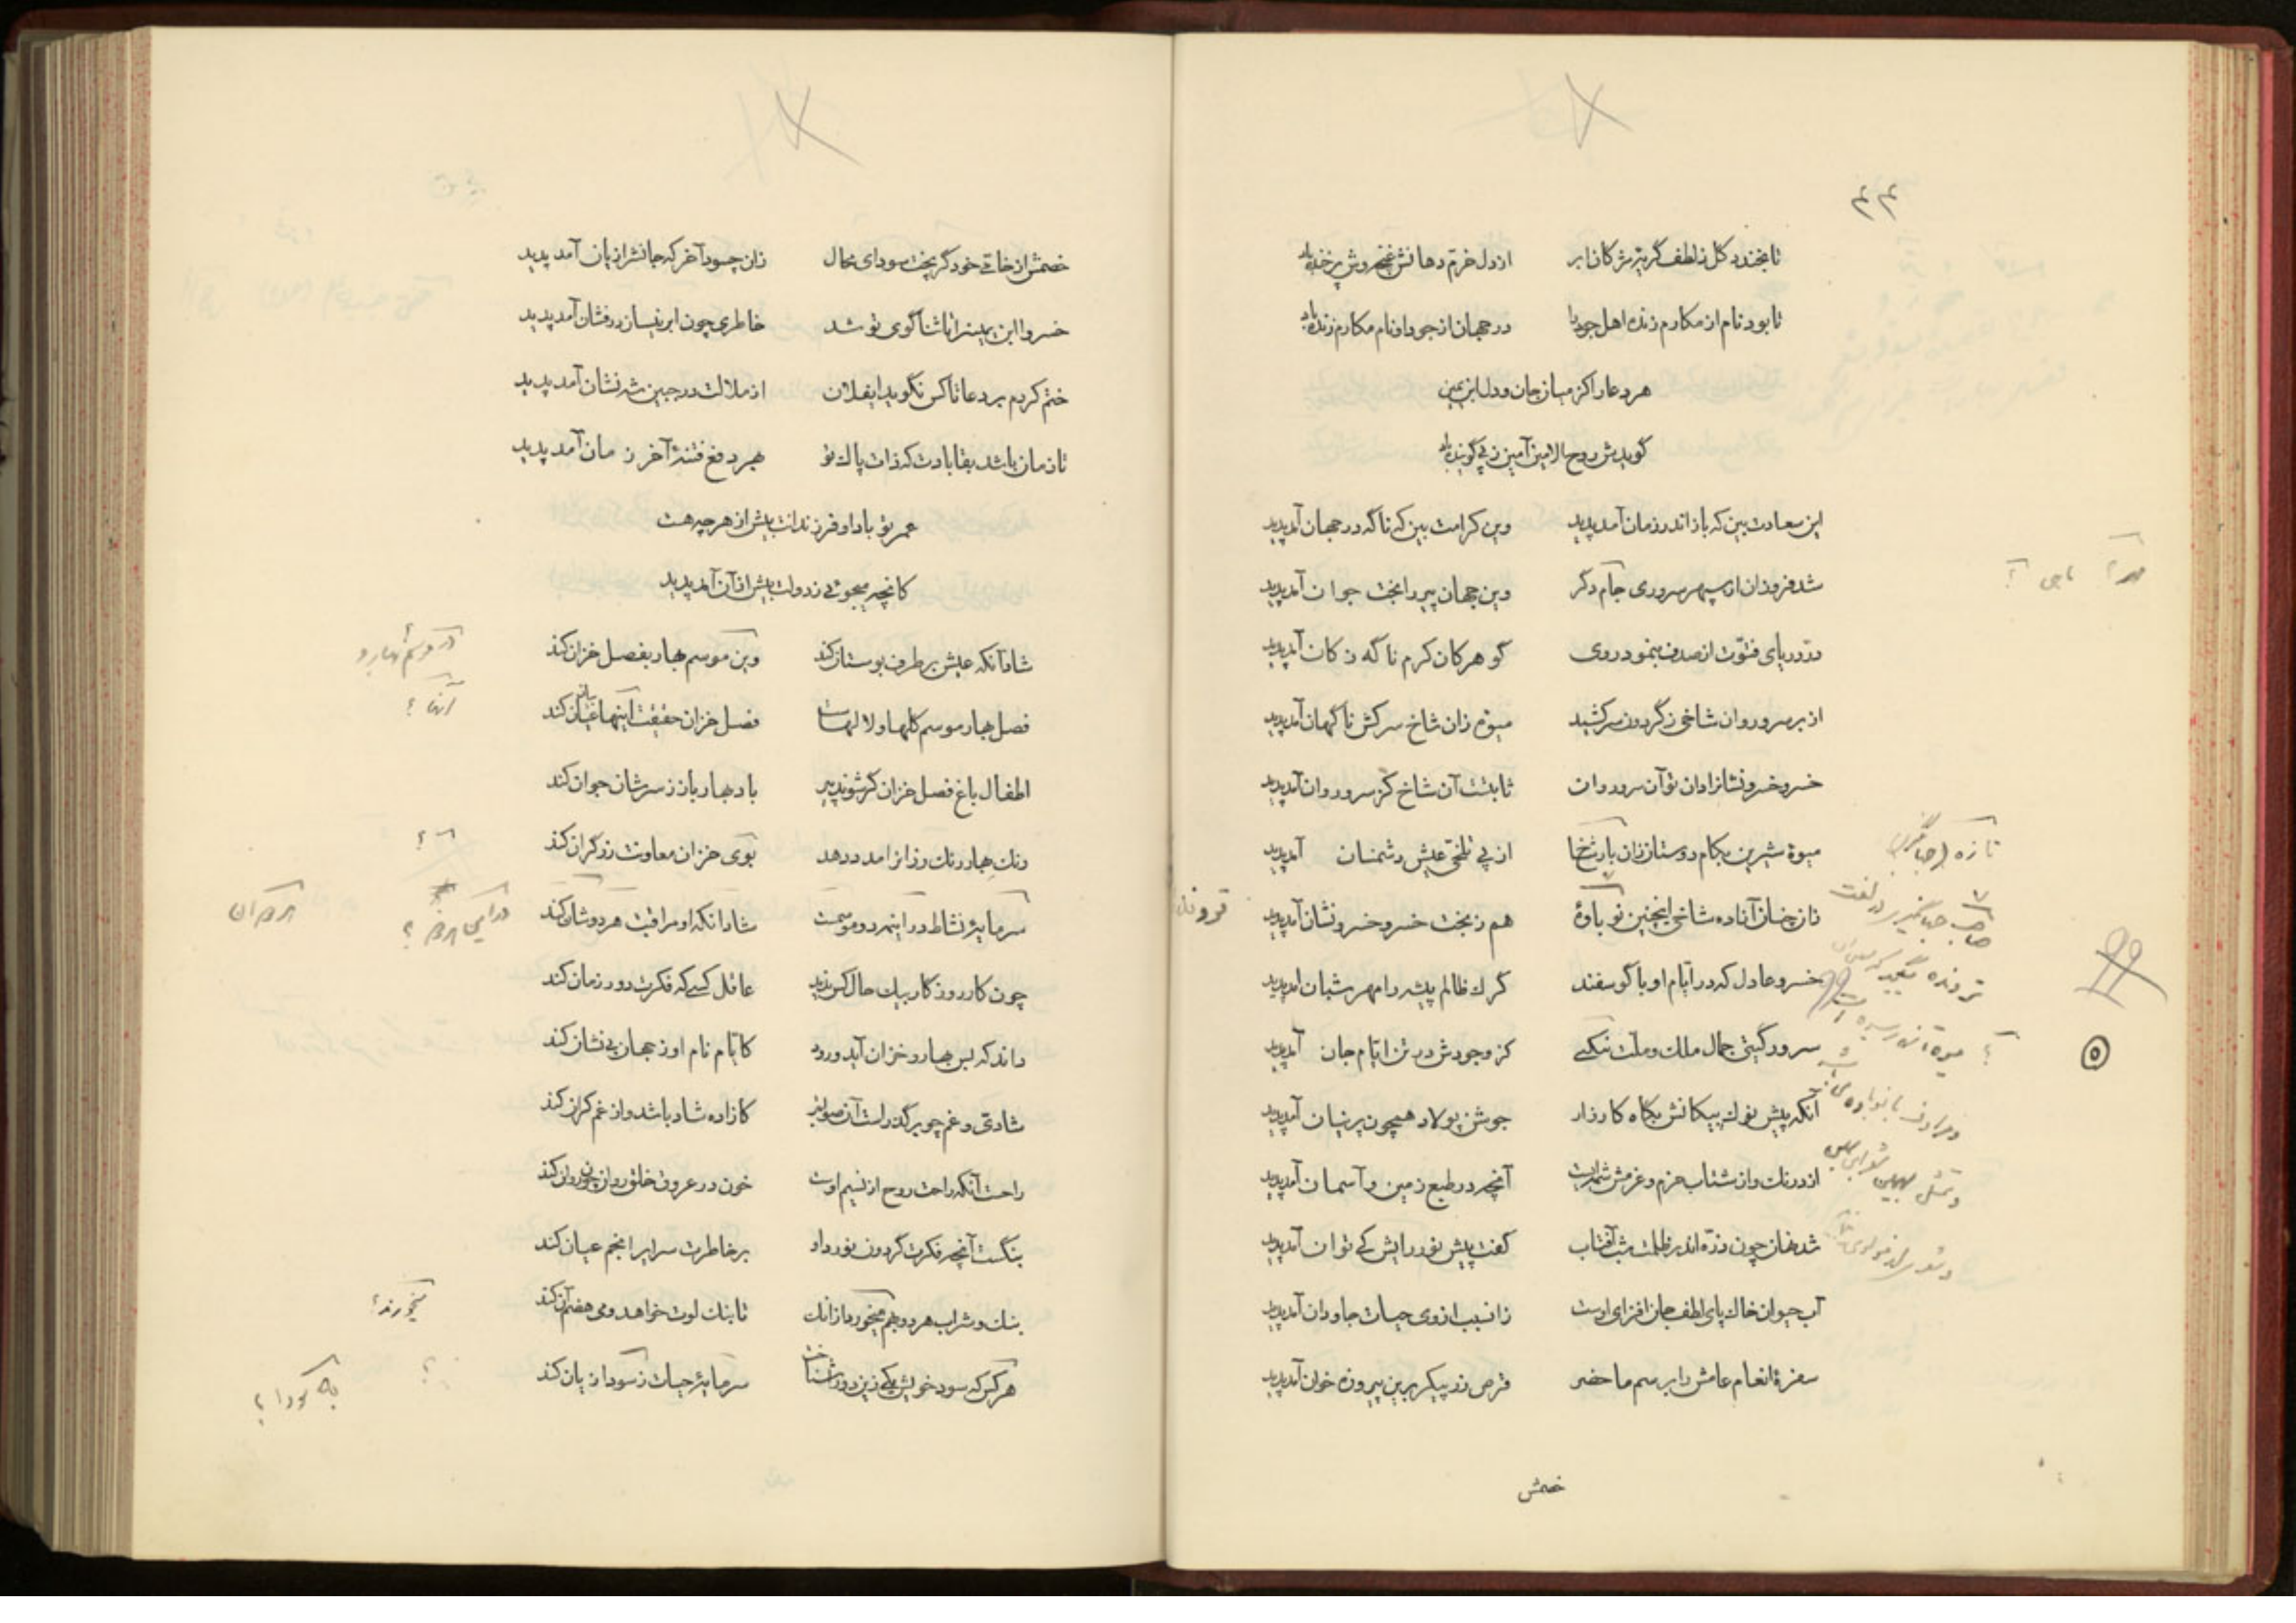 ۴۴
تا بخندد گل ز لطف گریهٔ مژگان ابر از دل خرم دهانش غنچه‌وش پرخنده باد
تا بود نام از مکارم زنده اهل جود را در جهان از جود او نام مکارم زنده باد
هر دعا را کز میان جان و دل ابن یمین
گویدش روح الامین آمین ز پی گوینده باد
این سعادت بین که باز اندر زمان آمد پدید وین کرامت بین که ناگه در جهان آمد پدید
شد فروزان از سپهر سروری جام دگر وین جهان پیر را بخت جوان آمد پدید
در دریای فتوت از صدف بنمود روی گوهر کان کرم ناگه ز کان آمد پدید
از بر سرو روان شاخی ز گردون سر کشید میوه زان شاخ سرکش ناگهان آمد پدید
خسرو خسرو نشانزادان تو آن سرو روان ثابتست آن شاخ کز سرو روان آمد پدید
میوهٔ شیرین بکام دوستان زان بار شخا از پی تلخی عیش دشمنان آمد پدید
زان چنان آزاده شاخی اینچنین نوباوهٔ هم ز بخت خسرو خسرو نشان آمد پدید
خسرو عادل که در ایام او با گوسفند گرگ ظالم پیشه را مهر شبان آمد پدید
سرور گیتی جمال ملک و ملت نیکپی کز وجودش در تن ایام جان آمد پدید
آنکه پیش نوک پیکانش بگاه کارزار جوشن پولاد همچون پرنیان آمد پدید
از درنگ و از شتاب حزم و عزمش شمه‌ایست آنچه در طبع زمین و آسمان آمد پدید
شد نهان چون ذره اندر ظلمت شب آفتاب گفت پیش نور رایش کی توان آمد پدید
آب حیوان خاک پای لطف جان افزای اوست زان سبب از وی حیات جاودان آمد پدید
سفرهٔ انعام عامش را برسم ماحضر قرص زر پیکر برین پیروزه خوان آمد پدید
خصمش
تازه (جهانگیری)
صاحب جهانگیری در لغت
ترونده
۵
خصمش از خامی خود گر پخت سودای محال زان چه سود آخر که جانش را زیان آمد پدید
خسروا ابن یمین را تا ثناگوی تو شد خاطری چون ابر نیسان درفشان آمد پدید
ختم کردم بر دعا تا کس نگوید ایفلان از ملالت در جبین شه نشان آمد پدید
تا زمان باشد بقا بادت که ذات پاک تو بهر دفع فتنهٔ آخر زمان آمد پدید
عمر تو بادا و فرزندانت بیش از هر چه هست
کانچه میجوئی ز دولت بیش از آن آمد پدید
شاد آنکه عیش بر طرف بوستان کند وین موسم بهار بفصل خزان کند
فصل بهار موسم گلها و لالهاست فصل خزان حقیقت اینها عیان کند
اطفال باغ فصل خزان گر شوند پیر باد بهار باز ز سرشان جوان کند
رنگ بهار رنگ رزانرا مدد دهد بوی خزان معاونت زرگران کند
سرمایهٔ نشاط در این هر دو موسمست شاد آنکه او مراقبت هر دوشان کند
چون کار روزگار بیک حال کس ندید عاقل کسی که فکرت دور زمان کند
داند که بس بهار و خزان آید و رود کایام نام او ز جهان بی نشان کند
شادی و غم چو برگذرانست آن صوابتر کازاده شاد باشد و از غم کران کند
راحت آنکه راحت روح از نسیم اوست خون در عروق خلق روان چون روان کند
بنگشت آنچه فکرت گردون نورد او بر خاطرت سرایر انجم عیان کند
بنگ و شراب هر دو بهم میخورد ازانک تا بنگ لوت خواهد و می هضم آن کند
هر کس که سود خویش یکی زین دو در شناخت سرمایهٔ حیات ز سودا زیان کند
در موسم بهار و
آنها ؟
در این هر دو ؟
میخورند ؟
به سودا ؟